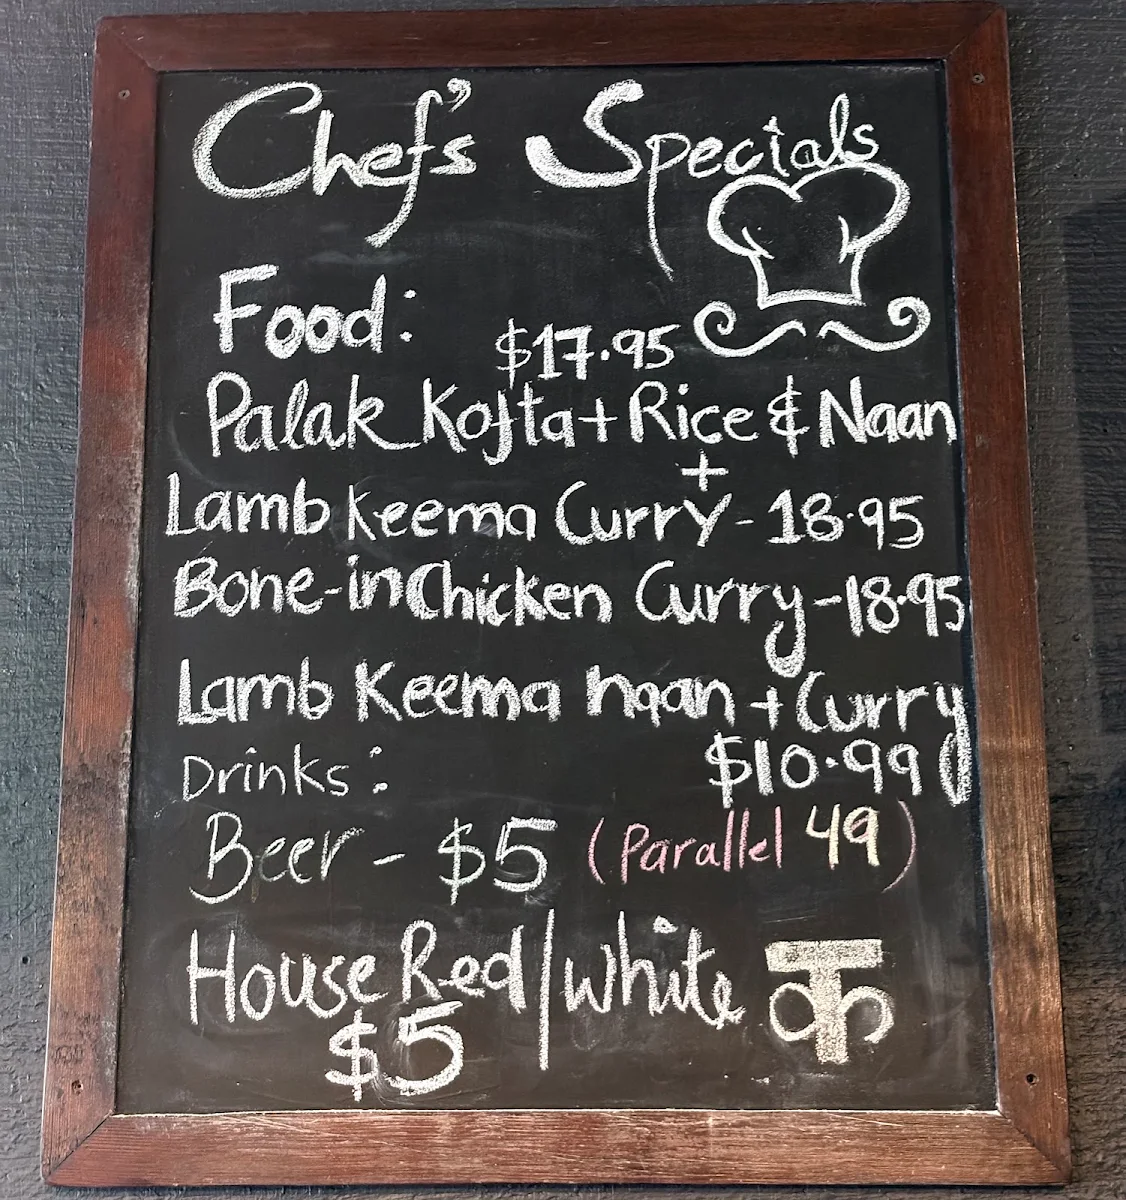 Chef's Specials
Food:
$17.95
Palak Kofta + Rice & Naan
+
Lamb Keema Curry - 18.95
Bone-in Chicken Curry - 18.95
Lamb Keema naan + Curry
$10.99
Drinks:
Beer - $5 (Parallel 49)
House Red/white
$5
क